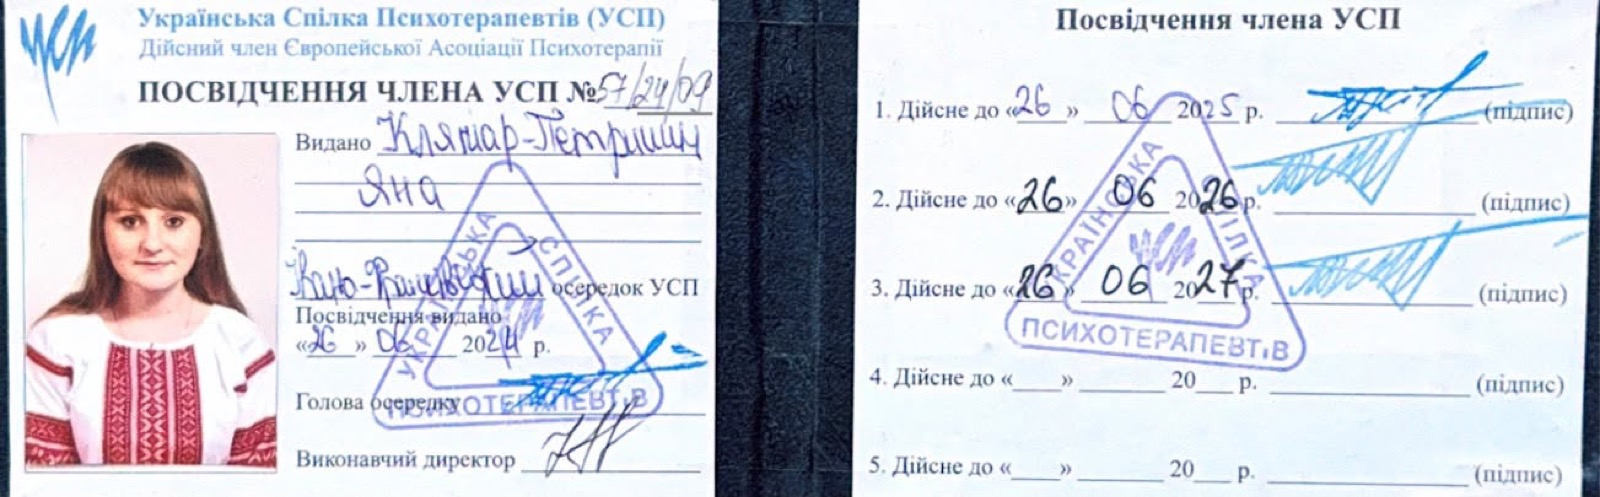 Українська Спілка Психотерапевтів (УСП)
Дійсний член Європейської Асоціації Психотерапії
ПОСВІДЧЕННЯ ЧЛЕНА УСП №57/24/09
Видано Кляпіар-Петришин
Яна
Івано-Франківський осередок УСП
Посвідчення видано
«26» 06 2024 р.
Голова осередку
Виконавчий директор
УКРАЇНСЬКА СПІЛКА ПСИХОТЕРАПЕВТІВ
Посвідчення члена УСП
1. Дійсне до «26» 06 2025 р. (підпис)
2. Дійсне до «26» 06 2026 р. (підпис)
3. Дійсне до «26» 06 2027 р. (підпис)
4. Дійсне до «___» ______ 20___ р. (підпис)
5. Дійсне до «___» ______ 20___ р. (підпис)
УКРАЇНСЬКА СПІЛКА ПСИХОТЕРАПЕВТІВ